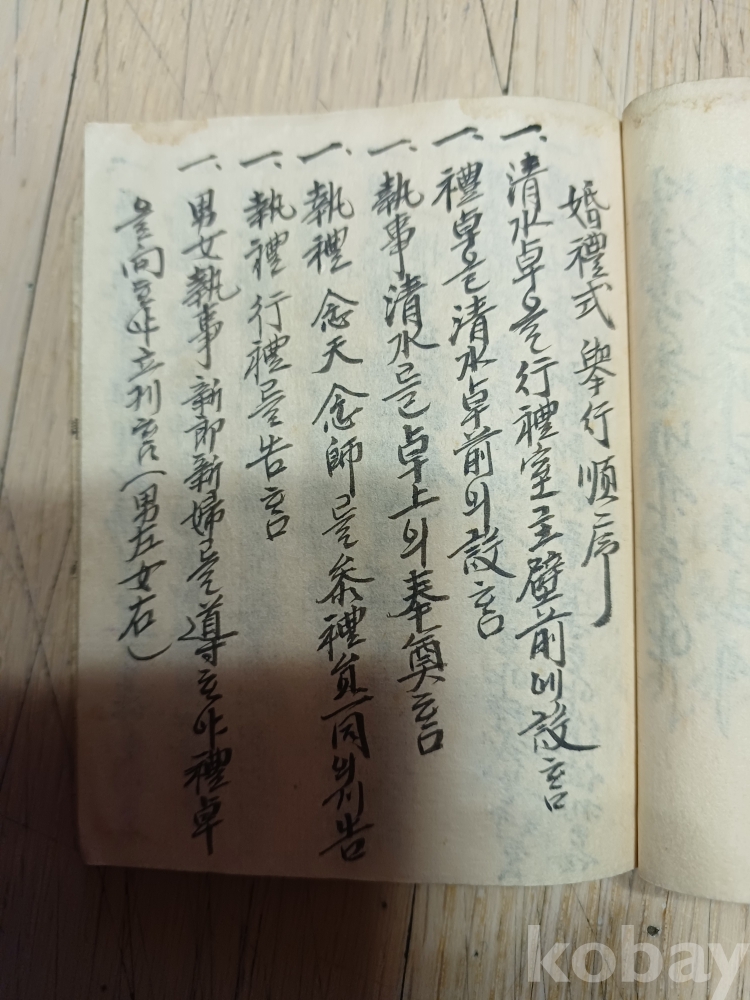 婚禮式 擧行順序
一、淸水卓을 行禮室 主壁前에 設홈
一、禮卓을 淸水卓前의 設홈
一、執事 淸水를 卓上의 奉奠홈
一、執禮 念天 念師를 叅禮員 一同의게 告
一、執禮 行禮를 告홈
一、男女執事 新郞新婦를 導하야 禮卓
을 向하야 立케홈(男左女右)
kobay